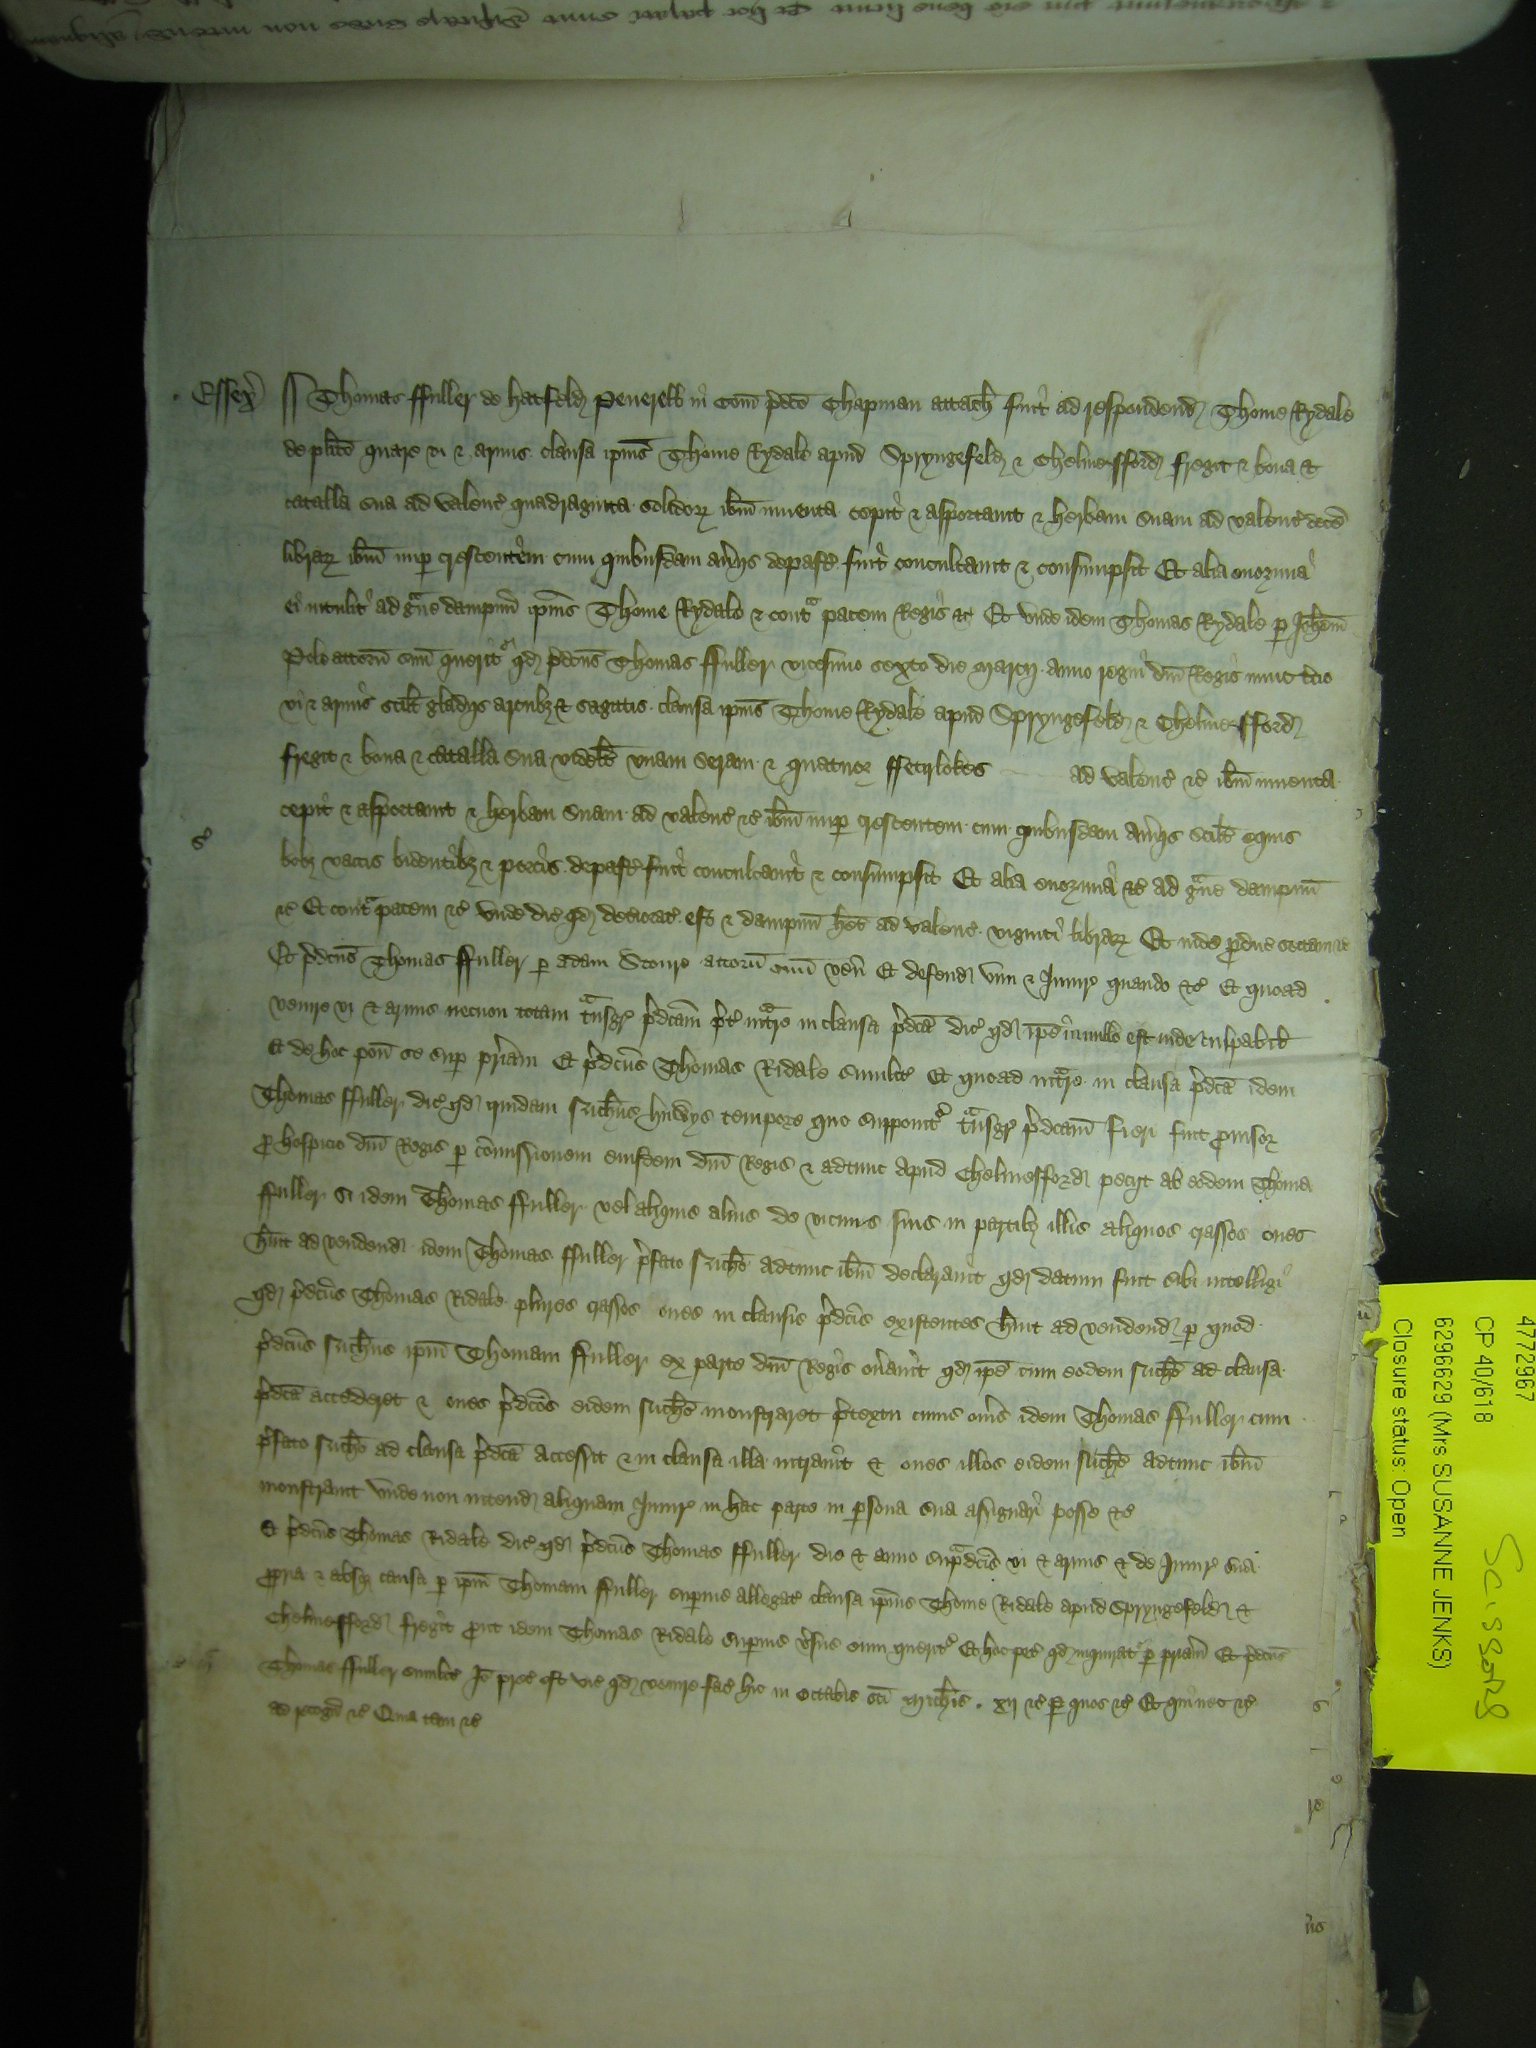 Essex Thomas ffuller de hatfeld Peuerell in Com pdco Chapman attach fuit ad respondend Thome Rydale
de plito quare vi & armis clausa ipius Thome Rydale apud Spryngefeld & Chelmesfford fregit & bona &
catalla sua ad valenc quadraginta solidor ibm inuenta cepit & asportauit & herbam suam ad valenc decem
librar ibm nup crescentem cum quibusdam aueriis depast fuit conculcauit & consumpsit Et alia enormia
ei intulit ad gue dampnu ipius Thome Rydale & conta pacem Regis &c Et vnde idem Thomas Rydale p Johem
Pole attorn suu querit qd pdcus Thomas ffuller vicesimo sexto die marcij anno regni dni Regis nunc tcio
vi & armis scilt gladijs arcubz & sagittis clausa ipius Thome Rydale apud Spryngefeld & Chelmesfford
fregit & bona & catalla sua videlt vnam seram & quatuor ffetirlokes ad valenc &c ibm inuenta
cepit & asportauit & herbam suam ad valenc &c ibm nup crescentem cum quibusdam aueriis scilt equis
bobz vaccis bidentibz & porcis depast fuit conculcauit & consumpsit Et alia enormia &c ad gue dampnu
&c Et conta pacem &c vnde dic qd deteriorat est & dampnu het ad valenc viginti librar Et inde pduc sectam &c
Et pdcus Thomas ffuller p Adam Stoure attorn suu ven Et defend vim & Iniur quando &c Et quoad
venire vi & armis necnon totam tansgr pdcam pt intare in clausa pdca dic qd ipe in nullo est inde culpabil
Et de hoc pon se sup priam Et pdcus Thomas Ridale similit Et quoad intare in clausa pdca idem
Thomas ffuller dic qd quidam Richus hudys tempore quo supponit tansgr pdcam fieri fuit puisor
p hospicio dni Regis p comissionem eiusdem dni Regis & adtunc apud Chelmesfford petijt ab eodem Thoma
ffuller si idem Thomas ffuller vel aliquis alius de vicinis suis in partibz illis aliquos crassos oues
huit ad vendend idem Thomas ffuller pfato Richo adtunc ibm declarauit qd datum fuit sibi intelligi
qd pdcus Thomas Ridale plures crassos oues in clausis pdcis existentes huit ad vendend p quod
pdcus Richus ipm Thomam ffuller ex parte dni Regis onauit qd ipe cum eodem Richo ad clausa
pdca accederet & oues pdcos eidem Richo monstraret ptextu cuius onis idem Thomas ffuller cum
pfato Richo ad clausa pdca accessit & in clausa illa intrauit & oues illos eidem Richo adtunc ibm
monstrauit vnde non intend aliquam Iniur in hac parte in psona sua assignari posse &c
Et pdcus Thomas Ridale dic qd pdcus Thomas ffuller die & anno supadcis vi & armis & de Iniur sua
ppria & absq causa p ipm Thomam ffuller supius allegat clausa ipius Thome Ridale apud Spryngefeld &
Chelmesfford fregit put idem Thomas Ridale supius vsus eum querit Et hoc pet qd inquirat p priam Et pdcus
Thomas ffuller similit Io prec est vic qd venire fac hic in Octabis sci Michis xij &c p quos &c Et qui nec &c
ad recogn &c Quia tam &c
4772967
CP 40/618
6296629 (Mrs SUSANNE JENKS)
Closure status: Open